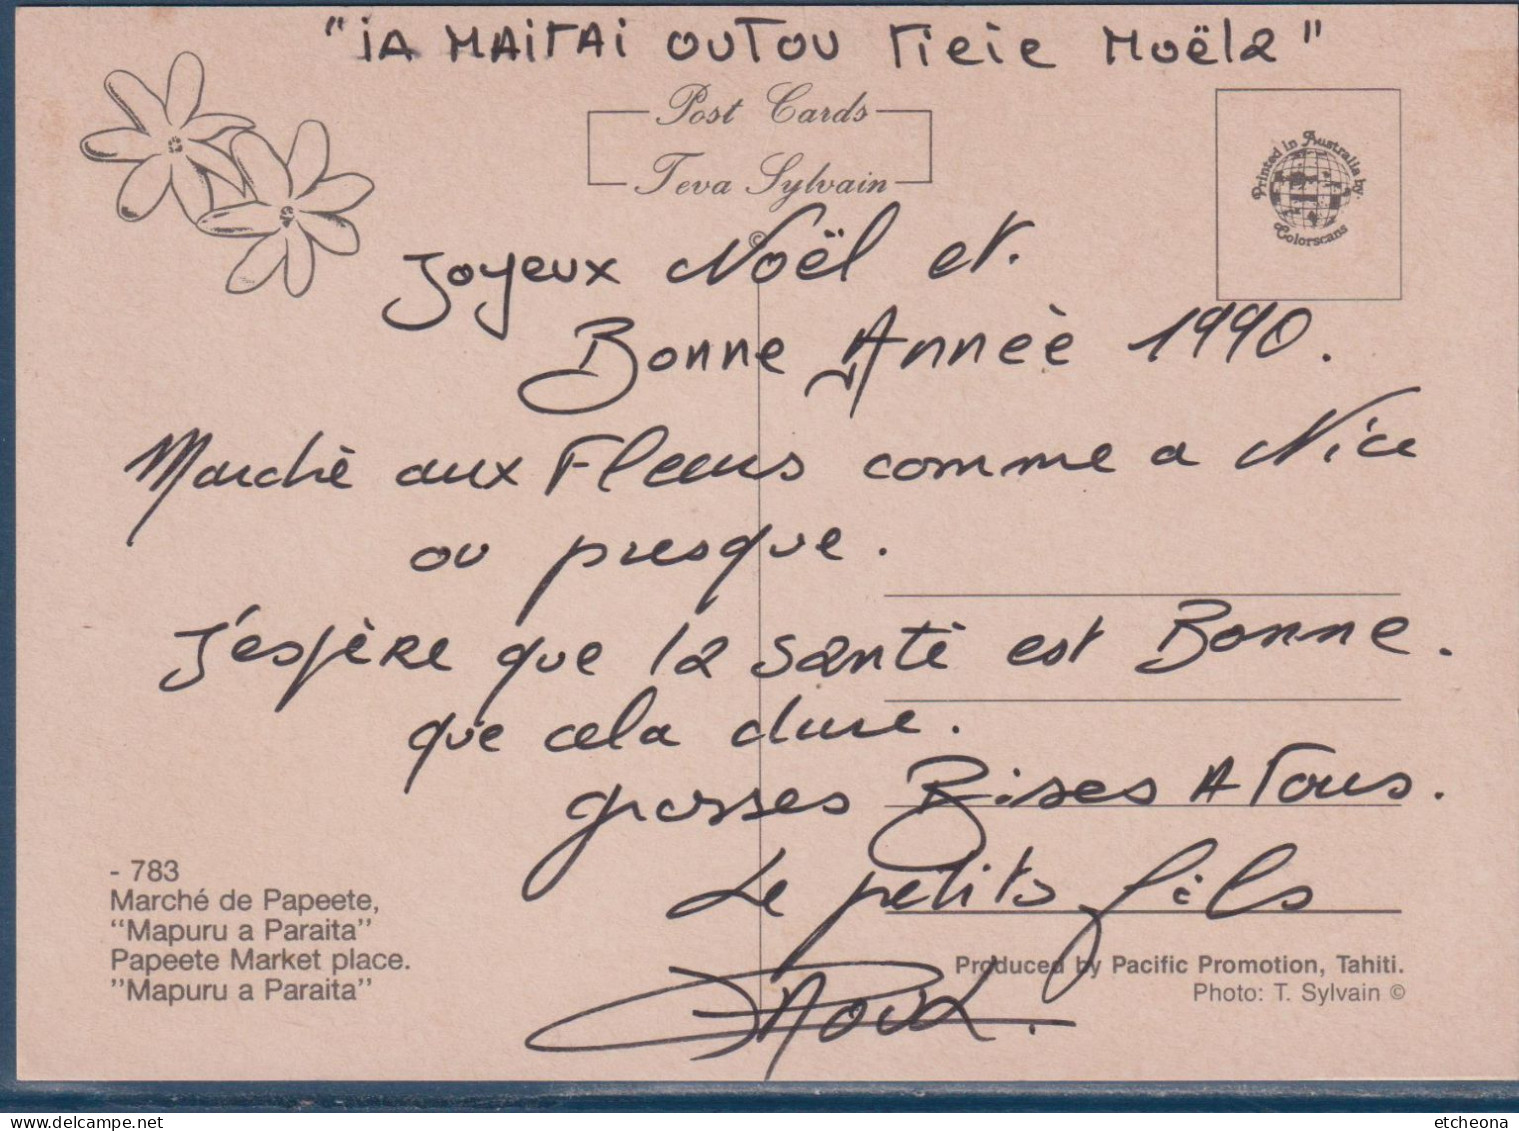 "iA MAiTAi OUTOU Tieie Noëla"
Post Cards
Teva Sylvain
©
Printed in Australia by:
Colorscans
Joyeux Noël et.
Bonne Annèè 1990.
Marchè aux Fleurs comme a Nice
ou presque.
J'espère que la santè est Bonne.
que cela dure.
grosses Bises A Tous.
Le petits fils
- 783
Marché de Papeete,
"Mapuru a Paraita"
Papeete Market place.
"Mapuru a Paraita"
Produced by Pacific Promotion, Tahiti.
Photo: T. Sylvain ©
delcampe.net
etcheona